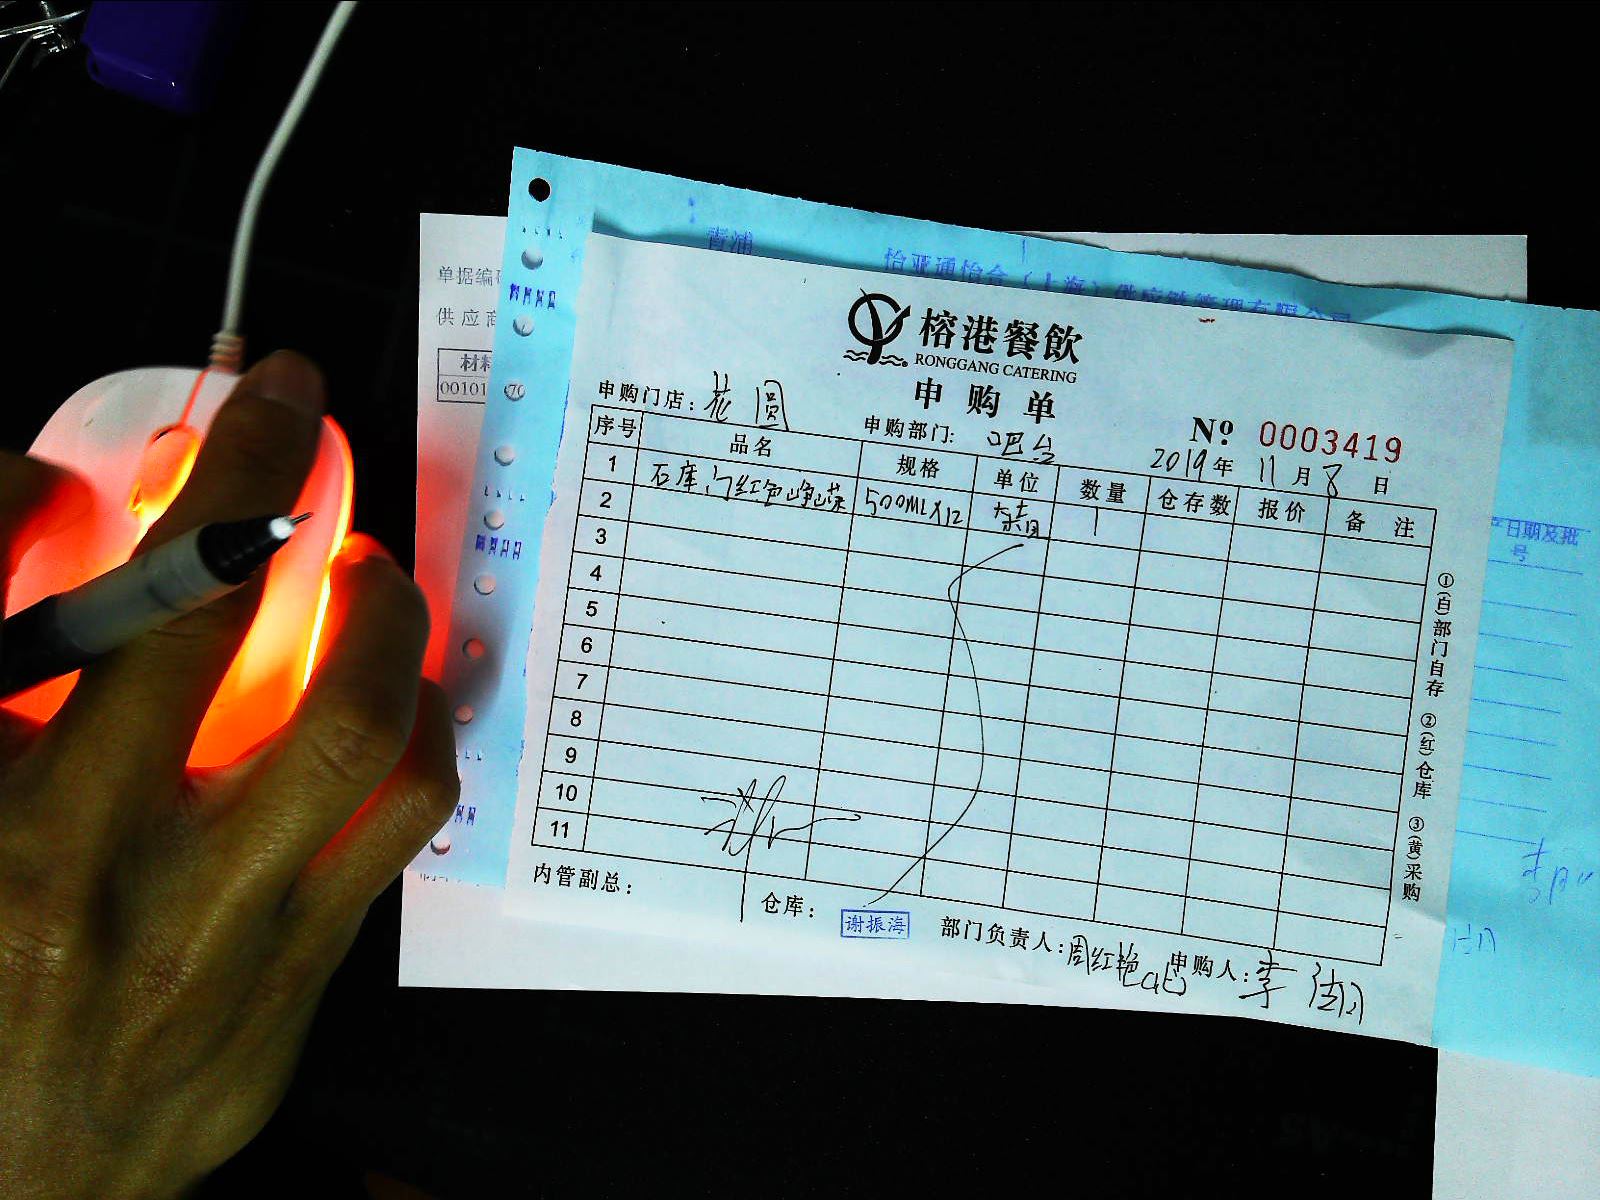 青浦
怡亚通怡合（上海）供应链管理有限公司
单据编
供应商
材料
00101 70
榕港餐飲
RONGGANG CATERING
申购单
申购门店：花园
申购部门：吧台
№ 0003419
2019年11月8日
序号 品名 规格 单位 数量 仓存数 报价 备注
1 石库门红色峥嵘 500MLX12 箱 1
2
3
4
5
6
7
8
9
10
11
①(白)部门自存 ②(红)仓库 ③(黄)采购
日期及批
号
内管副总：
仓库：谢振海
部门负责人：周红艳
申购人：李